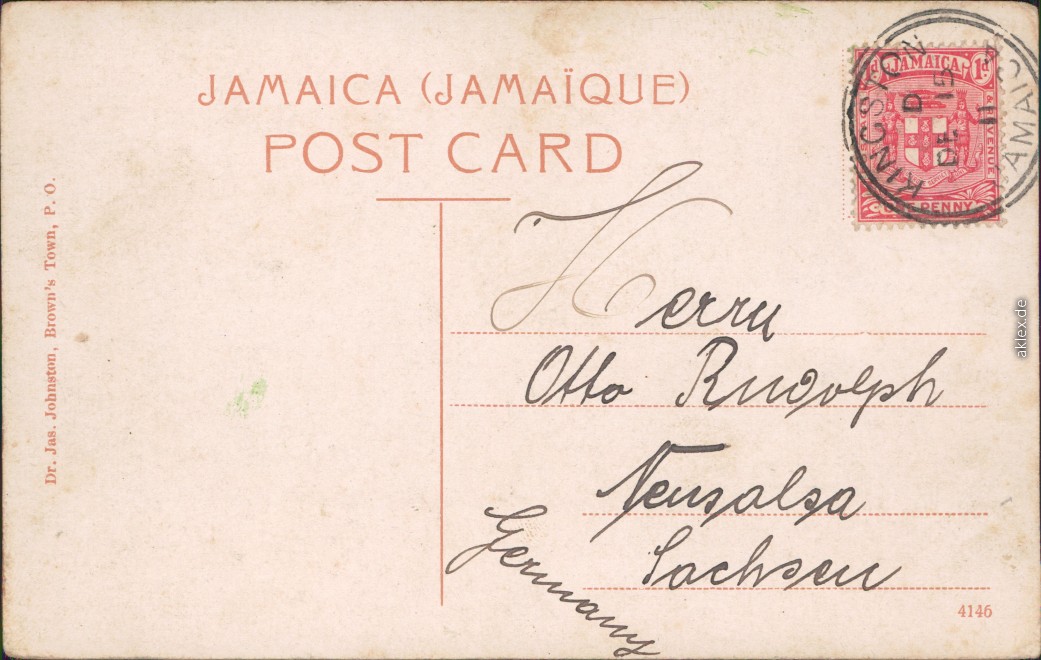 JAMAICA (JAMAÏQUE)
POST CARD
Dr. Jas. Johnston, Brown's Town, P. O.
JAMAICA
1d
& REVENUE
PENNY
KINGSTON
JAMAICA
D
DE 15
11
Herrn
Otto Rudolph
Neusalsa
Sachsen
Germany
4146
aklex.de